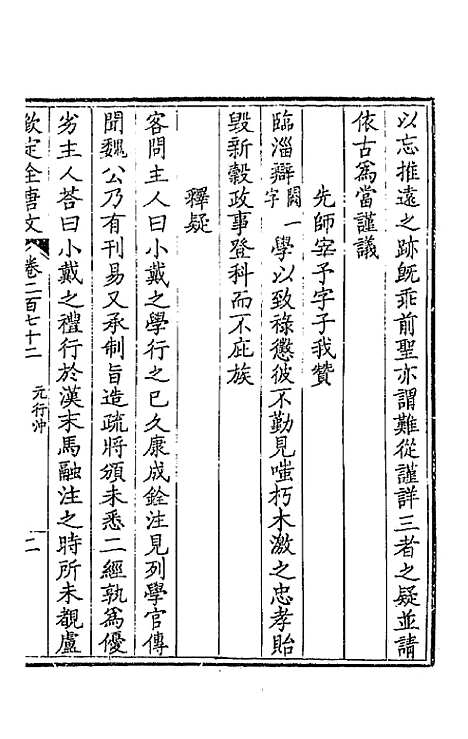 以忘推遠之跡旣乖前聖亦謂難從謹詳三者之疑並請
依古爲當謹議
先師宰予字子我贊
臨淄辯闕一字學以致祿懲彼不勤見嗤朽木激之忠孝貽
毀新穀政事登科而不庇族
釋疑
客問主人曰小戴之學行之已久康成銓注見列學官傳
聞魏公乃有刊易又承制旨造疏將頒未悉二經孰爲優
劣主人荅曰小戴之禮行於漢末馬融注之時所未覩盧
欽定全唐文 卷二百七十二 元行沖 二